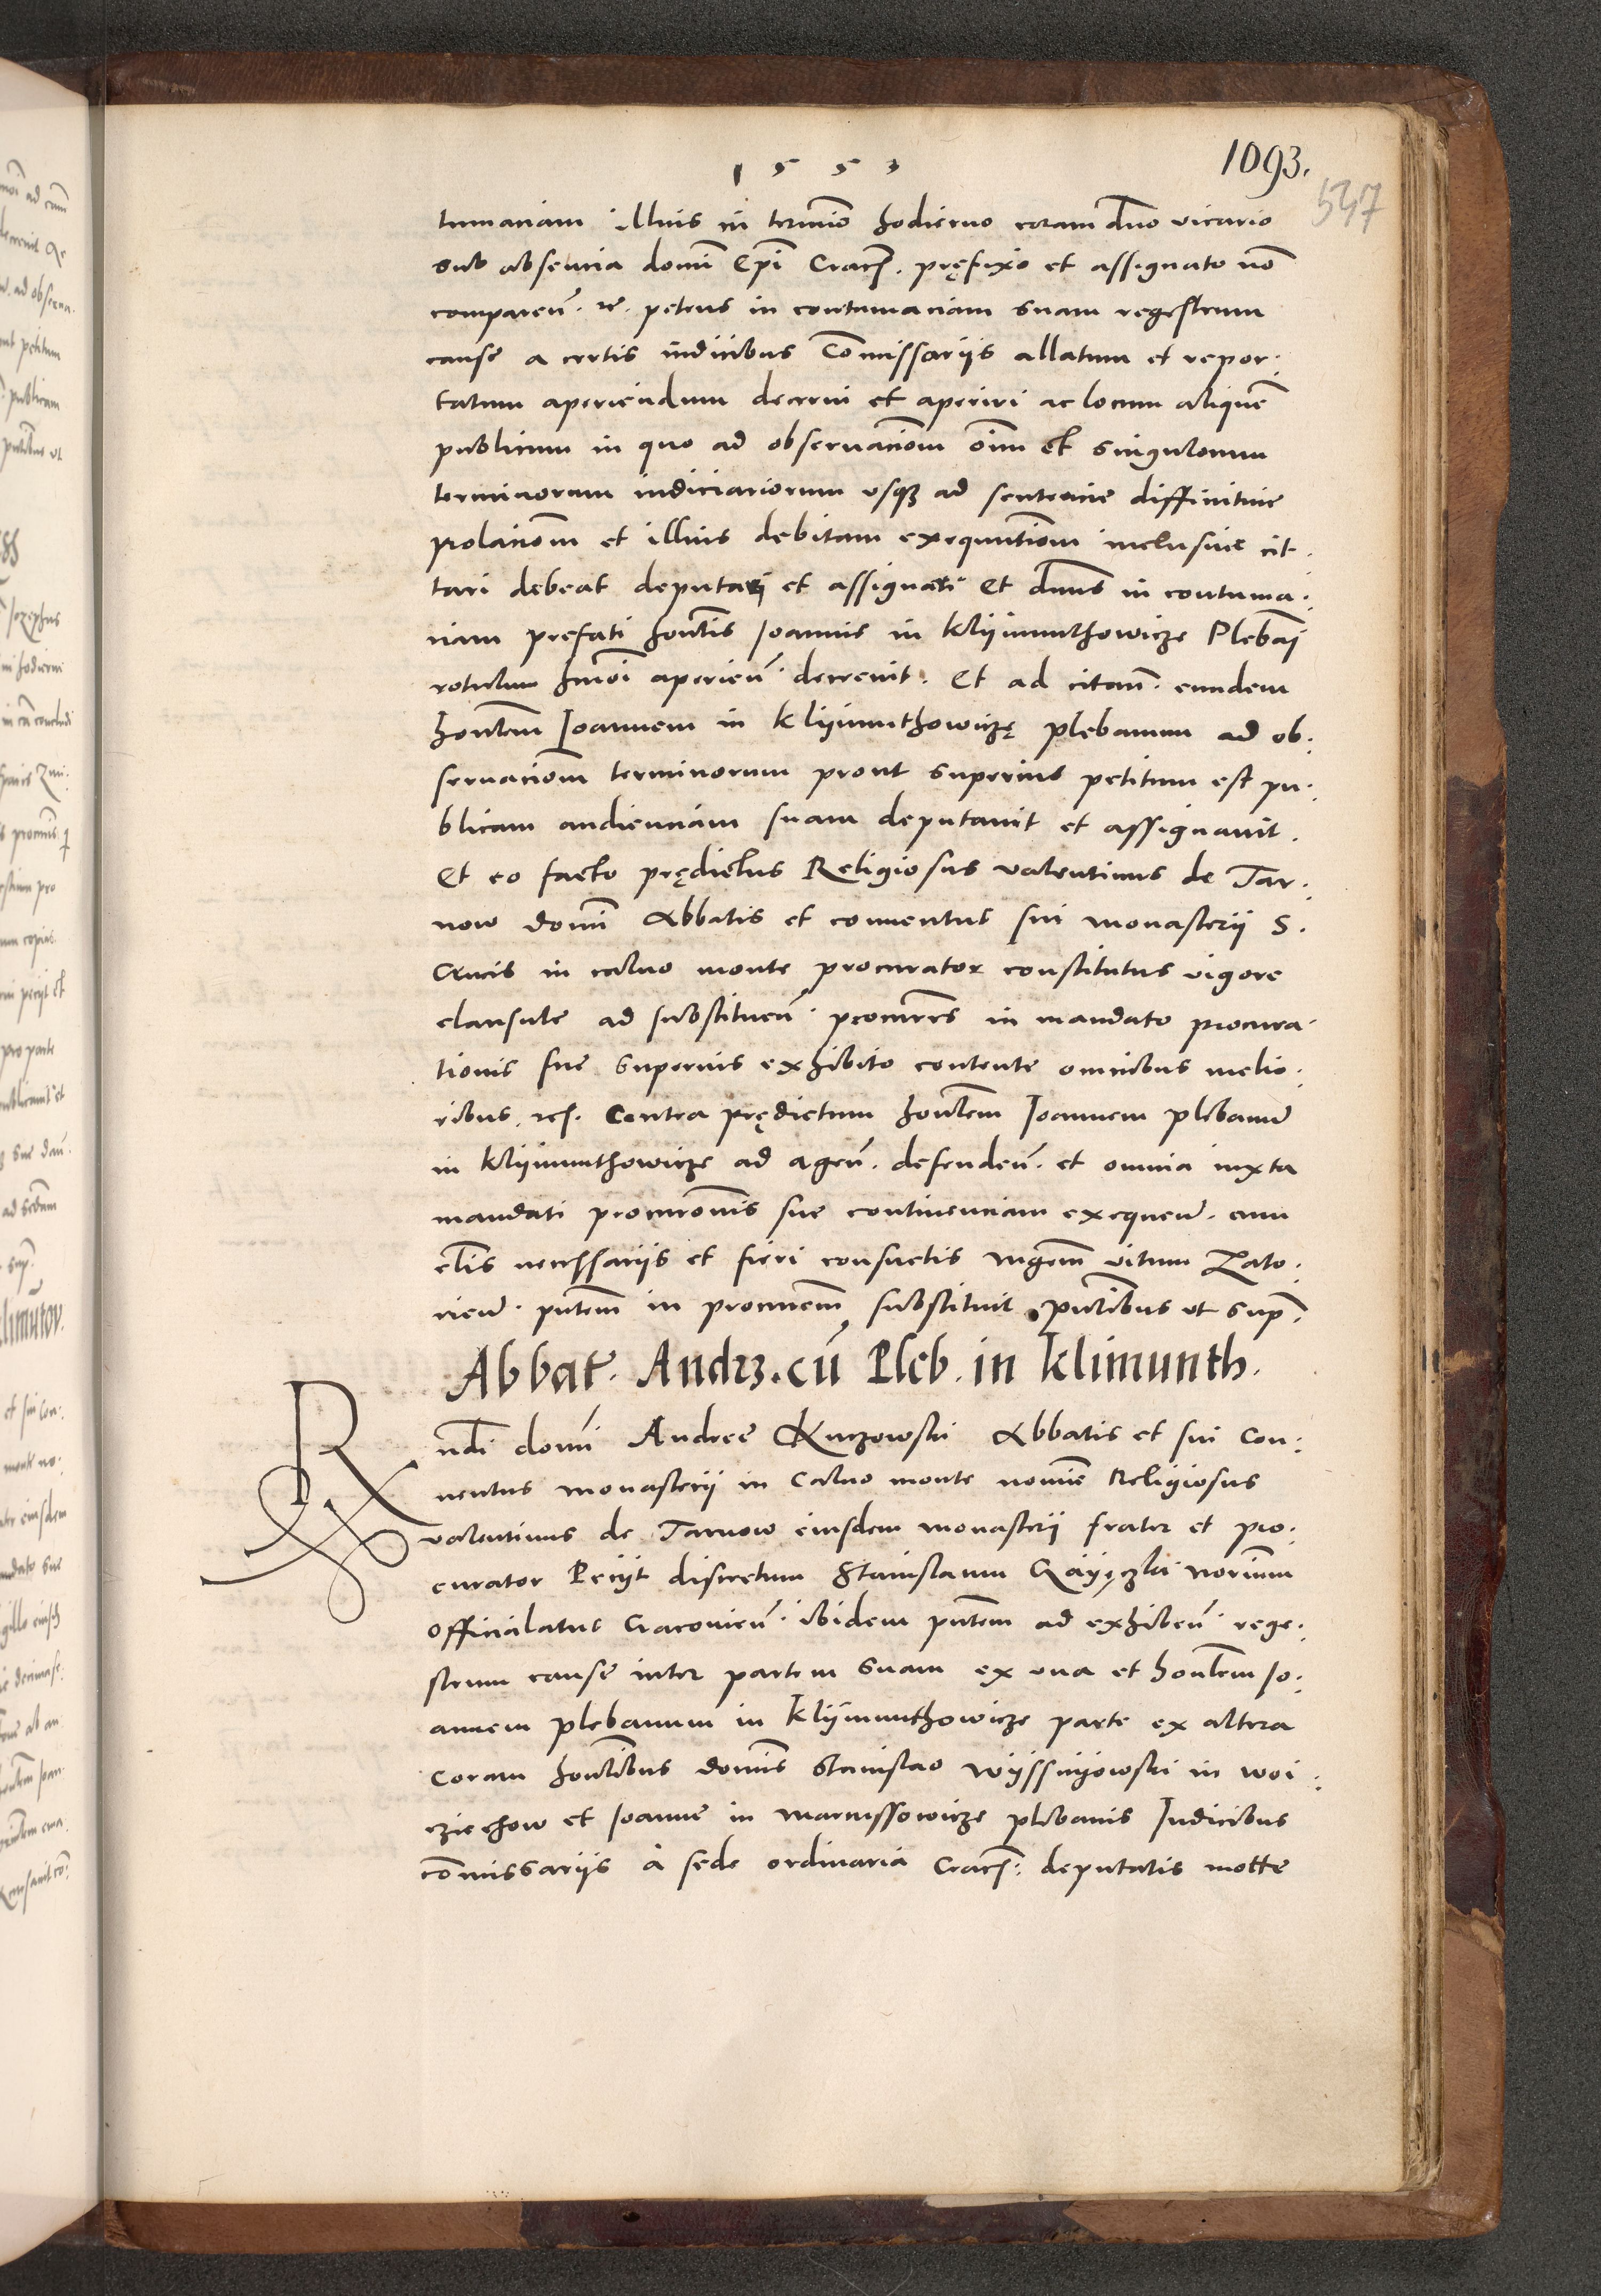 1553
1093.
547
tumaciam illius in termīo hodierno coram dn̄o vicario
sub absencia domī Ep̄i Crac̄. pręfixo et assignato nō
comparen̄. etc̄. petens in contumaciam suam regestrum
cause a certis iudicibus Com̄issariis allatum et repor:
tatum aperiendum decerni et aperiri ac locum aliquē
publicum in quo ad obseruaciōem oīm et singulorum
terminorum iudiciariorum vsqȝ ad sentencie diffinitiue
prolaciōem et illius debitam exequutiōem inclusiue cit.
tari debeat deputari et assignari Et dn̄us in contuma:
ciam prefati hon̄lis Joannis in Klijmunthowicze Plebāj
rotulum hm̄oi aperien̄. decreuit. Et ad citan̄. eundem
hon̄lem Joannem in Klijmunthowiczę plebanum ad ob:
seruaciōem terminorum prout superius petitum est pu:
blicam audienciam suam deputauit et assignauit.
Et eo facto prędictus Religiosus valentinus de Tar:
now domī Abbatis et conuentus sui monasterii S.
Crucis in caluo monte procurator constitutus vigore
clausule ad substituen̄. procur̄res in mandato procura:
tionis sue superius exhibito contente omnibus melio:
ribus etc̄. Contra prędictum hon̄lem Joannem plebanū
in Klijmunthowicze ad agen̄. defenden̄. et omnia iuxta
mandati procurōnis sue continenciam exequen̄. cum
cl̄is necessariis et fieri consuetis mgrm̄ vitum Zato:
rien̄. pn̄tem in procurem̄ substituit pn̄tibus vt sup̄:
Abbat̄. Andrȝ. cū Pleb. in Klimunth.
Rn̄di domī Andree Kurzowski Abbatis et sui Con:
uentus monasterij in Caluo monte nomīe Religiosus
valentinus de Tarnow eiusdem monasterij frater et pro:
curator Pecijt discretum Stanislaum notarium
Officialatus Cracouien̄. ibidem pn̄tem ad exhiben̄. rege:
strum cause inter partem suam ex vna et hon̄lem Jo:
annem plebanum in Klijmunthowicze parte ex altera
Coram hon̄libus domīs Stanislao wijssnijowski in woi:
cziechow et Joanne in marcissowicze plebanis Judicibus
com̄issariis à sede ordinaria Crac̄: deputatis motte